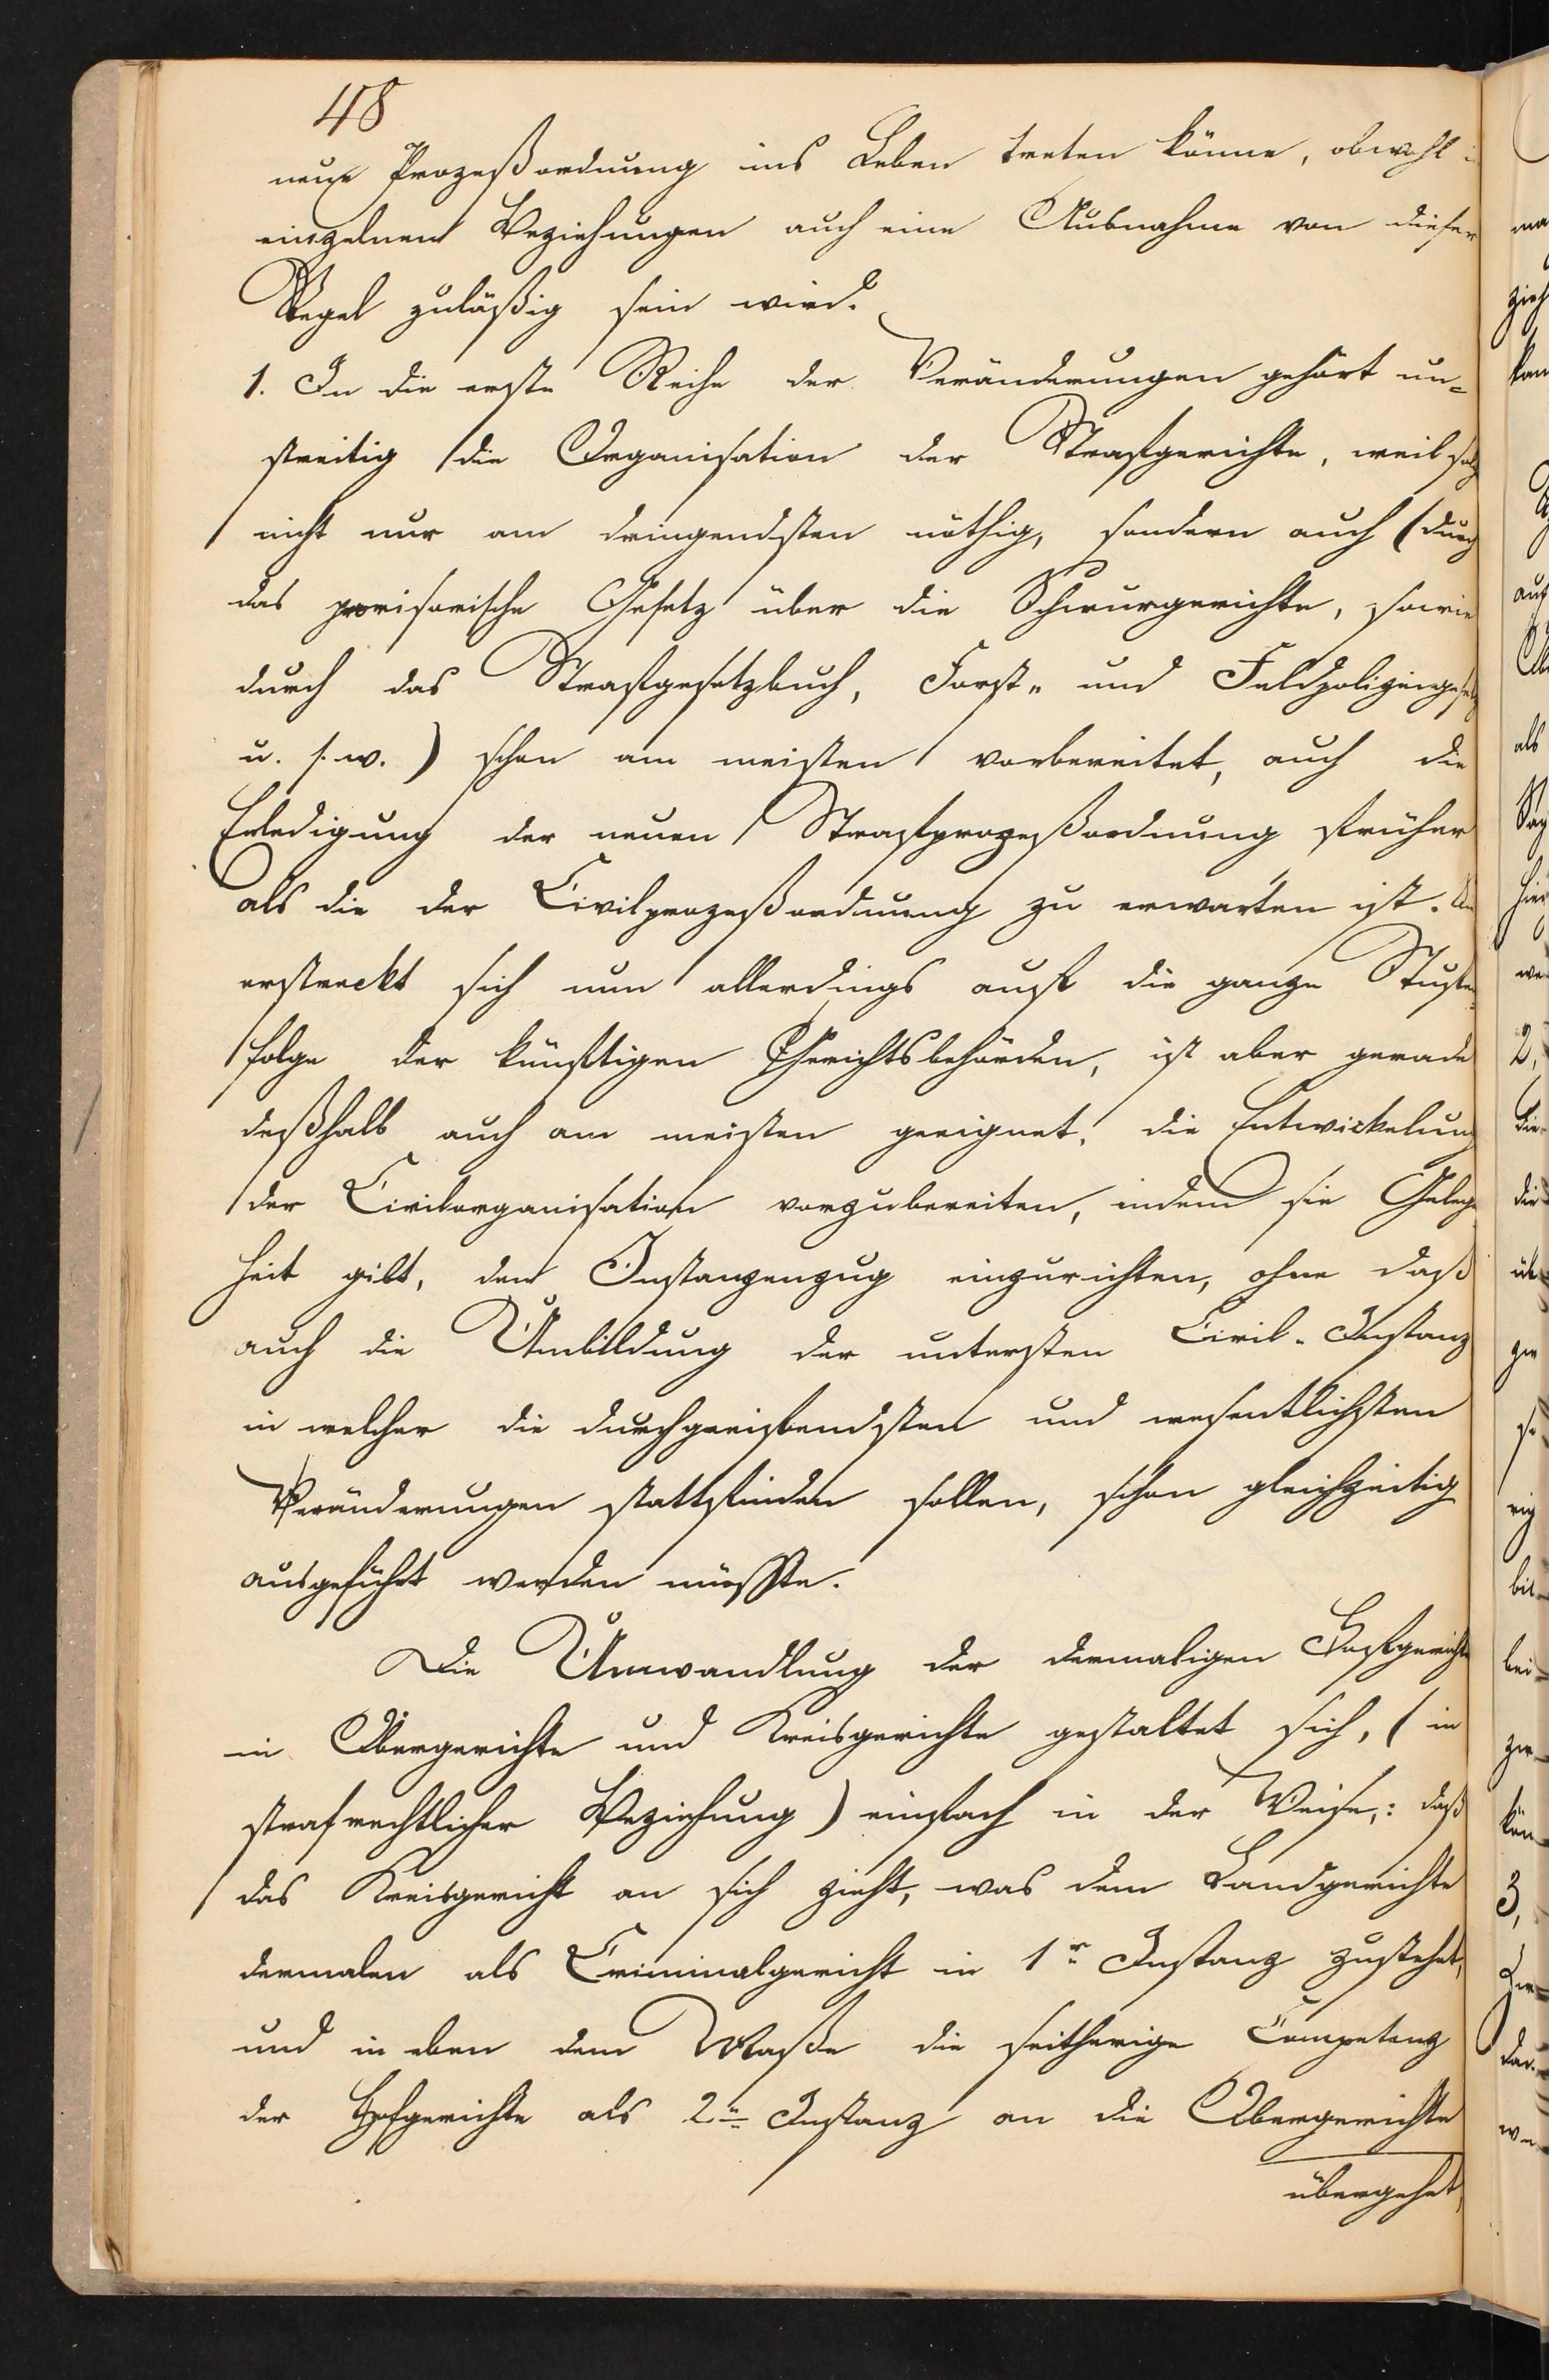 48
neue Prozeßordnung ins Leben treten könne, obwohl
einzelnen Beziehungen auch eine Ausnahme von dieser
Regel zuläßig sein wird.
1. In die erste Reihe der Veränderungen gehört un-
streitig die Organisation der Strafgerichte, weil solch
nicht nur am dringendsten nöthig, sondern auch (durch
das provisorische Gesetz über die Schwurgerichte, sowie
durch das Strafgesetzbuch, Forst- und Feldpolizeigesetz
u. s. w.) schon am meisten vorbereitet, auch die
Erledigung der neuen Strafprozeßordnung früher
als die der Civilprozeßordnung zu erwarten ist.
erstreckt sich nun allerdings auf die ganze Stufen
folge der künftigen Gerichtsbehörden, ist aber gerade
deßhalb auch am meisten geeignet, die Entwickelung
der Civilorganisation vorzubereiten, indem sie Gelege
heit gibt, den Instanzenzug einzurichten, ohne daß
auch die Umbildung der untersten Civil-Instanz
in welcher die durchgreifendsten und wesentlichsten
Veränderungen stattfinden sollen, schon gleichzeitig
ausgeführt werden müßte.
Die Umwandlung der dermaligen Hofgerichte
in Obergerichte und Kreisgerichte gestaltet sich, (in
strafrechtlicher Beziehung) einfach in der Weise,: daß
das Kreisgericht an sich zieht, was dem Landgerichte
dermalen als Criminalgericht in 1r Instanz zustehet,
und in eben dem Maße die seitherige Competenz
der Hofgerichte als 2n Instanz an die Obergerichte
übergehet,